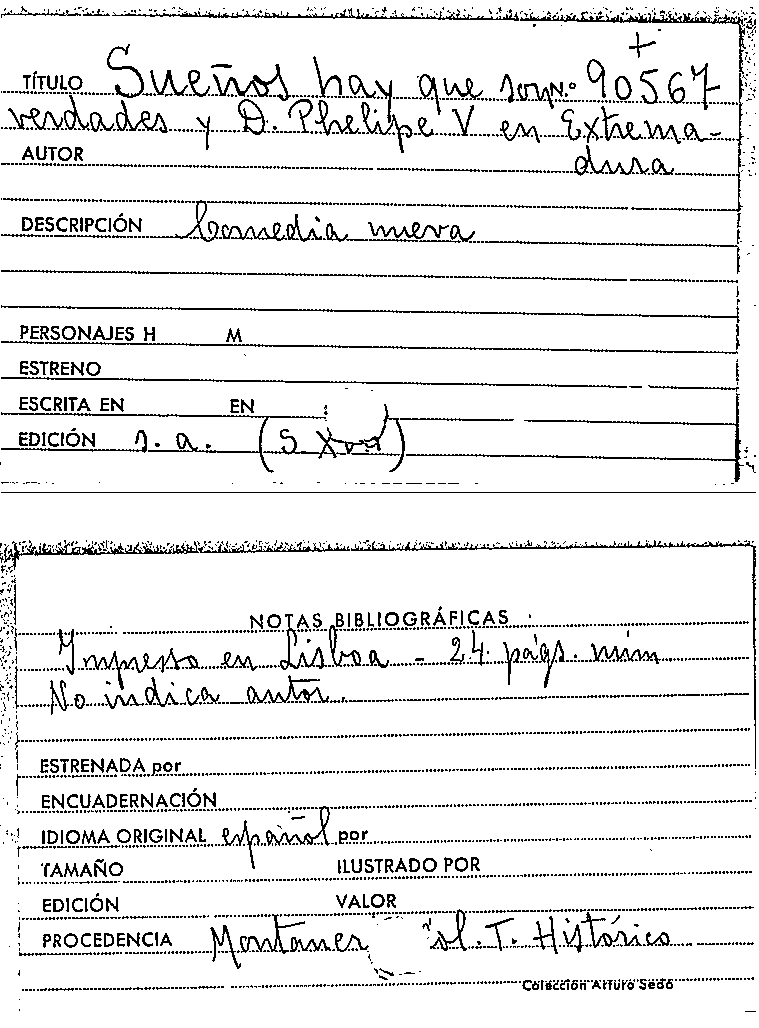 +
TÍTULO Sueños hay que son N.º 90567
verdades y D. Phelipe V en Extrema-
AUTOR dura
DESCRIPCIÓN Comedia nueva
PERSONAJES H M
ESTRENO
ESCRITA EN EN
EDICIÓN s. a. (S. XVIII)
NOTAS BIBLIOGRÁFICAS
Impreso en Lisboa - 24 págs. núm
No indica autor.
ESTRENADA por
ENCUADERNACIÓN
IDIOMA ORIGINAL español por
TAMAÑO ILUSTRADO POR
EDICIÓN VALOR
PROCEDENCIA Montaner T. Histórico
Colección Arturo Sedó